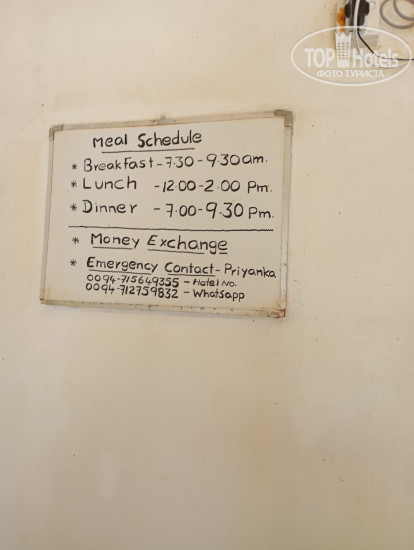 TOP Hotels
ФОТО ТУРИСТА
Meal Schedule
* Breakfast - 7.30 - 9.30 am.
* Lunch - 12.00 - 2.00 Pm.
* Dinner - 7.00 - 9.30 Pm.
* Money Exchange
* Emergency Contact - Priyanka
0094-715649355 - Hotel No.
0094-712759832 - Whatsapp